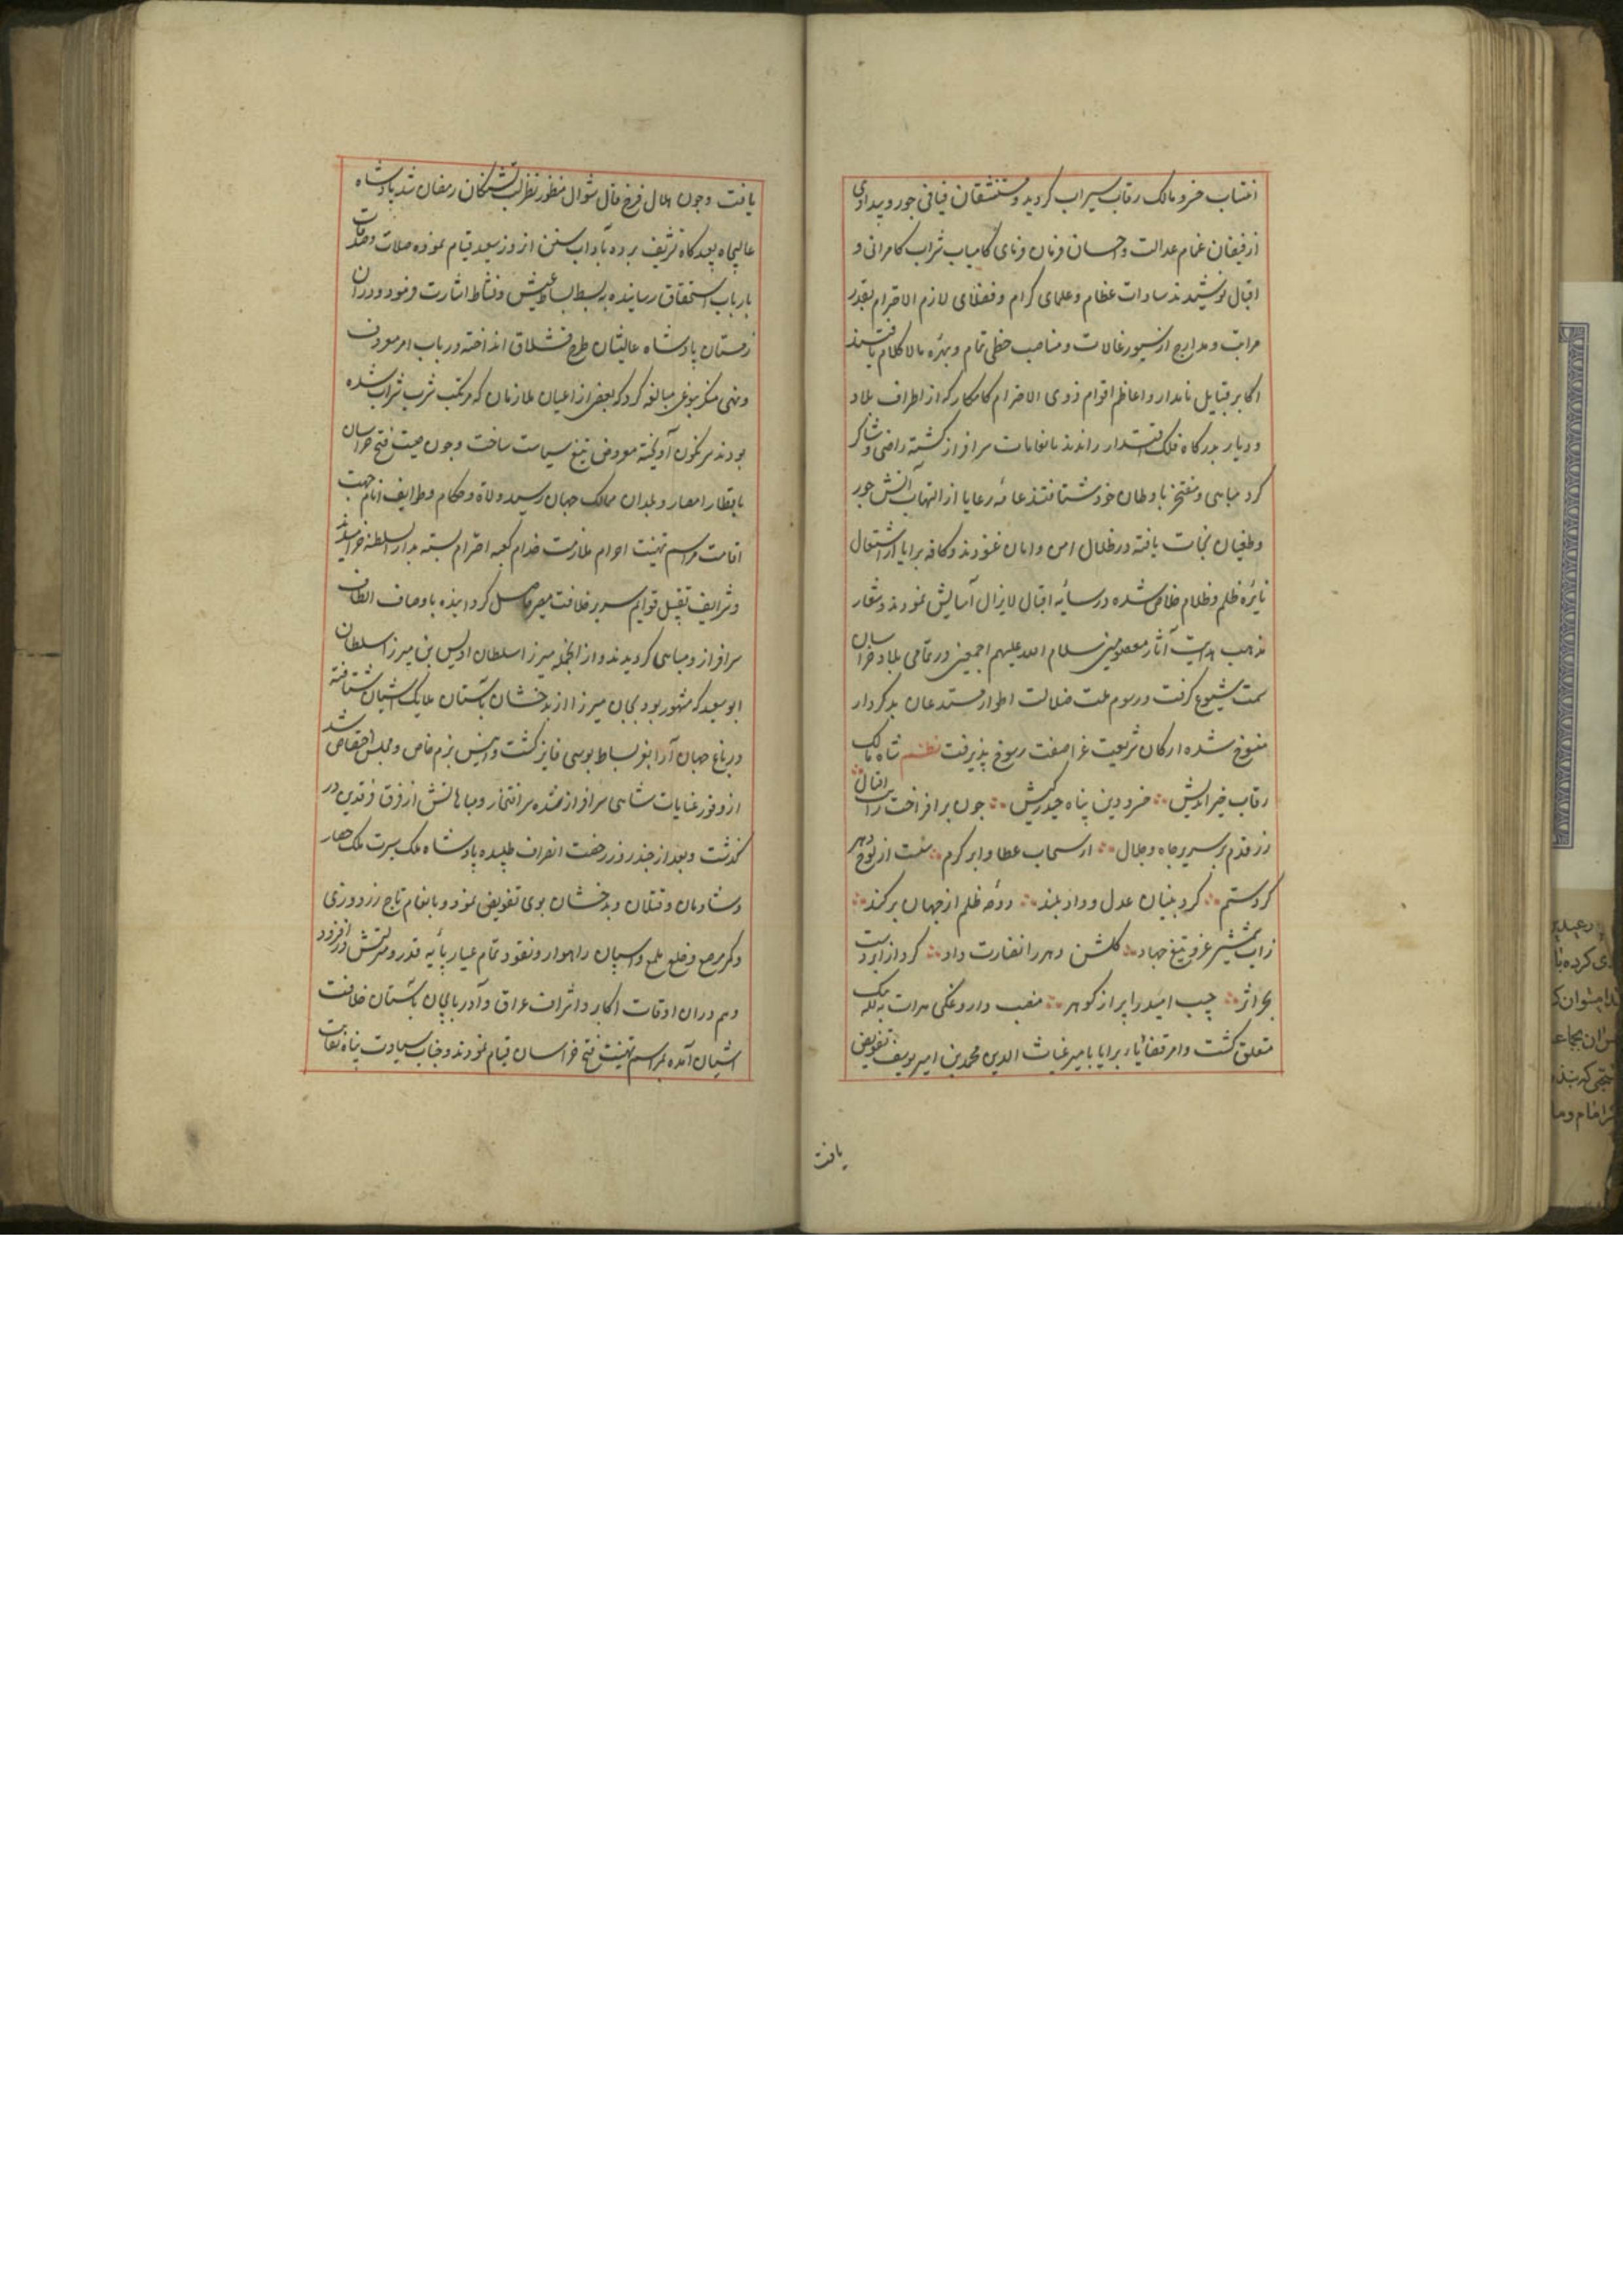 انتساب خسرو مالک رقاب سیراب کردید و مستنشقان فیافی جور و بیدادی
از فیضان غمام عدالت و احسان فرمان فرمای کامیاب شراب کامرانی و
اقبال نوشیدند سادات عظام و علمای کرام و فضلای لازم الاحترام بقدر
مراتب و مدارج از سیورغالات و مناصب حظی تمام و بهره مالاکلام یافتند
اکابر قبایل نامدار و اعاظم اقوام ذوی الاحترام کامکار که از اطراف بلاد
و دیار بدرگاه فلک اقتدار راندند بانعامات سرافراز گشته راضی و شاکر
کرد مباهی و مفتخر باوطان خود شتافتند عامه رعایا از التهاب آتش جور
و طغیان نجات یافته در ظلال امن و امان غنودند و کافه برایا از اشتعال
نایره ظلم و ظلام خلاص شده در سایه اقبال لایزال آسایش نمودند و شعار
مذهب هدایت آثار معصومین سلام الله علیهم اجمعین در تمامی بلاد خراسان
سمت شیوع گرفت و رسوم ملت ضلالت اطوار مبتدعان بدکردار
منسوخ شده ارکان شریعت غرا صفت رسوخ پذیرفت نظم شاه مالک
رقاب خیراندیش خسرو دین پناه حیدر کیش چون برافراخت رایت اقبال
زد قدم بر سریر جاه و جلال از سحاب عطا و ابر کرم شست از لوح دهر
کرد ستم کرد بنیان عدل و داد بلند دوحه ظلم از جهان برکند
زاب شمشیر غزو تیغ جهاد گلشن دهر را نضارت داد کرد از ابر دست
بحر اثر جیب امید را پر از گوهر منصب داروغگی هرات به لله بیک
متعلق گشت و امر قضایاء برایا بامیر غیاث الدین محمد بن امیر یوسف تفویض
یافت
یافت و چون هلال فرخ فال شوال منظور نظر لب تشنگان رمضان شد پادشاه
عالیجاه بعیدگاه تشریف برده بآداب سنن از روز سعید قیام نموده صلات و صدقات
بارباب استحقاق رسانیده به بسط بساط عیش و نشاط اشارت فرمود و در آن
زمستان پادشاه عالیشان طرح قشلاق انداخته در باب امر معروف
و نهی منکر بنوعی مبالغه کرد که بعضی از اعیان ملازمان که مرتکب شرب شراب شده
بودند سرنگون آویخته معروض تیغ سیاست ساخت و چون صیت فتح خراسان
باقطار امصار و بلدان ممالک جهان رسید ولاة و حکام و طوایف انام جهت
اقامت مراسم تهنیت احرام ملازمت خدام کعبه احترام بسته بدار السلطنه خرامیدند
و شرایف تقبیل قوایم سریر خلافت مصیر حاصل گردانیده باوصاف الطاف
سرافراز و مباهی گردیدند و از آنجمله میرزا سلطان اویس بن میرزا سلطان
ابوسعید که مشهور بود بخان میرزا از بدخشان بآستان ملایک آشیان شتافته
در باغ جهان آرا بعز بساط بوسی فایز گشت و انیس بزم خاص و مجلس اختصاص شد
از وفور عنایات شاهی سرافراز شده سر افتخار و مباهاتش از فرق فرقدین در
گذشت و بعد از چند روز رخصت انصراف طلبیده پادشاه ملک سیرت ملک حصار
و شادمان و ختلان و بدخشان بوی تفویض نمود و بانعام تاج زردوزی
و کمر مرصع و خلع ملمع و اسپان راهوار و نقود تمام عیار پایه قدر و منزلتش در افزود
و هم در آن اوقات اکابر و اشراف عراق و آذربایجان بآستان خلافت
آشیان آمده بمراسم تهنیت فتح خراسان قیام نمودند و جناب سیادت پناه نقابت